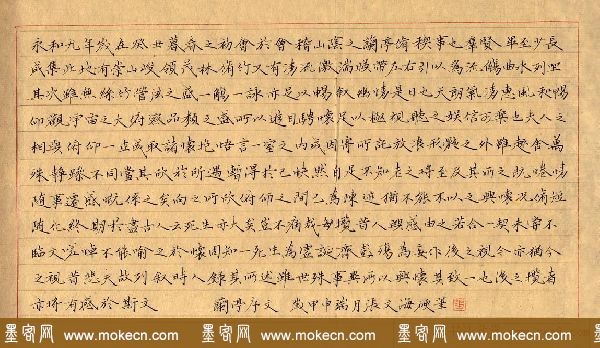 永和九年歲在癸丑暮春之初會於會稽山陰之蘭亭脩稧事也羣賢畢至少長
咸集此地有崇山峻領茂林脩竹又有清流激湍暎帶左右引以為流觴曲水列坐
其次雖無絲竹管弦之盛一觴一詠亦足以暢敘幽情是日也天朗氣清惠風和暢
仰觀宇宙之大俯察品類之盛所以遊目騁懷足以極視聽之娛信可樂也夫人之
相與俯仰一世或取諸懷抱悟言一室之內或因寄所託放浪形骸之外雖趣舍萬
殊靜躁不同當其欣於所遇暫得於己快然自足不知老之將至及其所之既惓情
隨事遷感慨係之矣向之所欣俯仰之間已為陳迹猶不能不以之興懷況脩短
隨化終期於盡古人云死生亦大矣豈不痛哉每攬昔人興感由之若合一契未嘗不
臨文嗟悼不能喻之於懷固知一死生為虛誕齊彭殤為妄作後之視今亦猶今
之視昔悲夫故列敘時人錄其所述雖世殊事異所以興懷其致一也後之攬者
亦將有感於斯文 蘭亭序文 歲甲申瑞月張文海硬筆
墨客网 www.mokecn.com 墨客网 www.mokecn.com 墨客网 www.mokecn.com